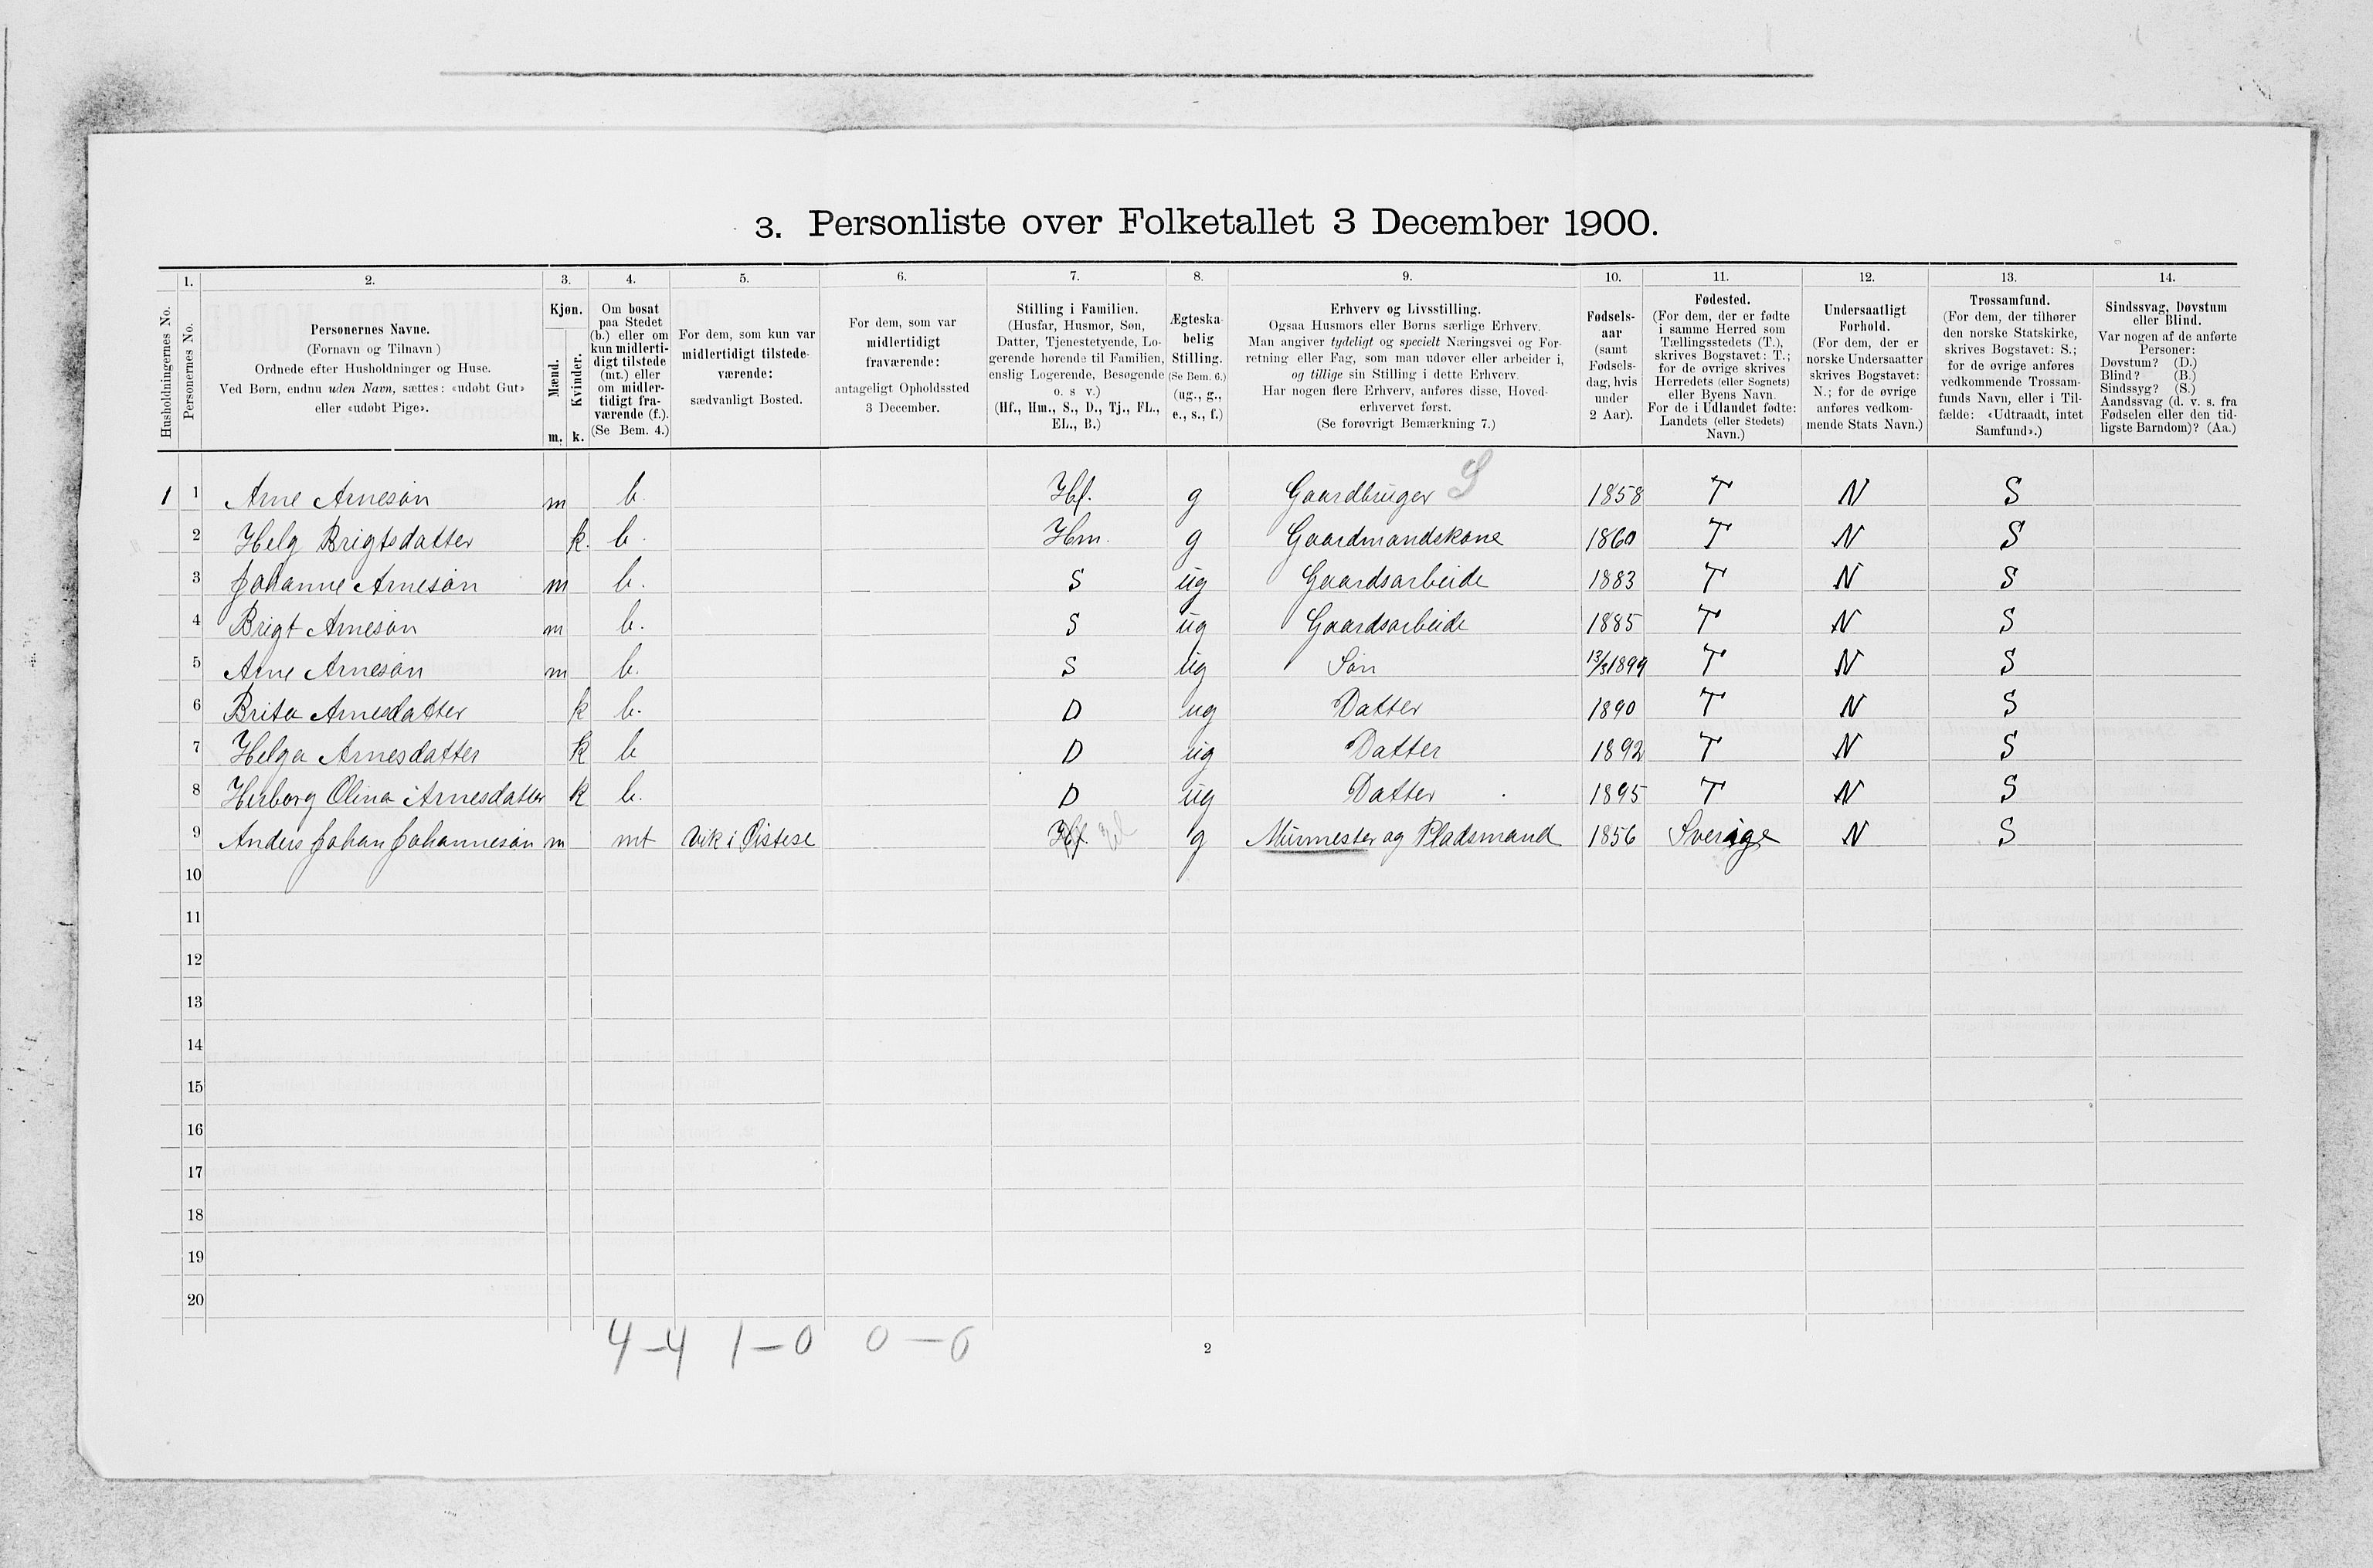 3. Personliste over Folketallet 3 December 1900.
1. 2. 3. 4. 5. 6. 7. 8. 9. 10. 11. 12. 13. 14.
Husholdningernes No.
Personernes No.
Personernes Navne.
(Fornavn og Tilnavn)
Ordnede efter Husholdninger og Huse.
Ved Børn, endnu uden Navn, sættes: «udøbt Gut»
eller «udøbt Pige».
Kjøn.
Mænd.
Kvinder.
m. k.
Om bosat
paa Stedet
(b.) eller om
kun midlerti-
digt tilstede
(mt.) eller
om midler-
tidigt fra-
værende (f.).
(Se Bem. 4.)
For dem, som kun var
midlertidigt tilstede-
værende:
sædvanligt Bosted.
For dem, som var
midlertidigt
fraværende:
antageligt Opholdssted
3 December.
Stilling i Familien.
(Husfar, Husmor, Søn,
Datter, Tjenestetyende, Lo-
gerende hørende til Familien,
enslig Logerende, Besøgende
o. s v.)
(Hf., Hm., S., D., Tj., FL.,
EL., B.)
Ægteska-
belig
Stilling.
(Se Bem. 6.)
(ug., g.,
e., s., f.)
Erhverv og Livsstilling.
Ogsaa Husmors eller Børns særlige Erhverv.
Man angiver tydeligt og specielt Næringsvei og For-
retning eller Fag, som man udøver eller arbeider i,
og tillige sin Stilling i dette Erhverv.
Har nogen flere Erhverv, anføres disse, Hoved-
erhvervet først.
(Se forøvrigt Bemærkning 7.)
Fødsels-
aar
(samt
Fødsels-
dag, hvis
under
2 Aar).
Fødested.
(For dem, der er fødte
i samme Herred som
Tællingsstedets (T.),
skrives Bogstavet: T.;
for de øvrige skrives
Herredets (eller Sognets)
eller Byens Navn.
For de i Udlandet fødte:
Landets (eller Stedets)
Navn.)
Undersaatligt
Forhold.
(For dem, der er
norske Undersaatter
skrives Bogstavet:
N.; for de øvrige
anføres vedkom-
mende Stats Navn.)
Trossamfund.
(For dem, der tilhører
den norske Statskirke,
skrives Bogstavet: S.;
for de øvrige anføres
vedkommende Trossam-
funds Navn, eller i Til-
fælde: «Udtraadt, intet
Samfund».)
Sindssvag, Døvstum
eller Blind.
Var nogen af de anførte
Personer:
Døvstum? (D.)
Blind? (B.)
Sindssyg? (S.)
Aandssvag (d. v. s. fra
Fødselen eller den tid-
ligste Barndom)? (Aa.)
1 1 Arne Arnesøn m b. Hf. g Gaardbruger S 1858 T N S
2 Helg Brigtsdatter k. b. Hm. g Gaardmandskone 1860 T N S
3 Johanne Arnesøn m b. S ug Gaardsarbeide 1883 T N S
4 Brigt Arnesøn m b. S ug Gaardsarbeide 1885 T N S
5 Arne Arnesøn m b. S ug Søn 13/3 1899 T N S
6 Brita Arnesdatter k b. D ug Datter 1890 T N S
7 Helga Arnesdatter k b D ug Datter 1892 T N S
8 Herborg Olina Arnesdatter k b. D ug Datter 1895 T N S
9 Anders Johan Johannesøn m mt Vik i Østese Hf. g Murmester og Pladsmand 1856 Sverige N S
10
11
12
13
14
15
16
17
18
19
20
4-4 1-0 0-0
2